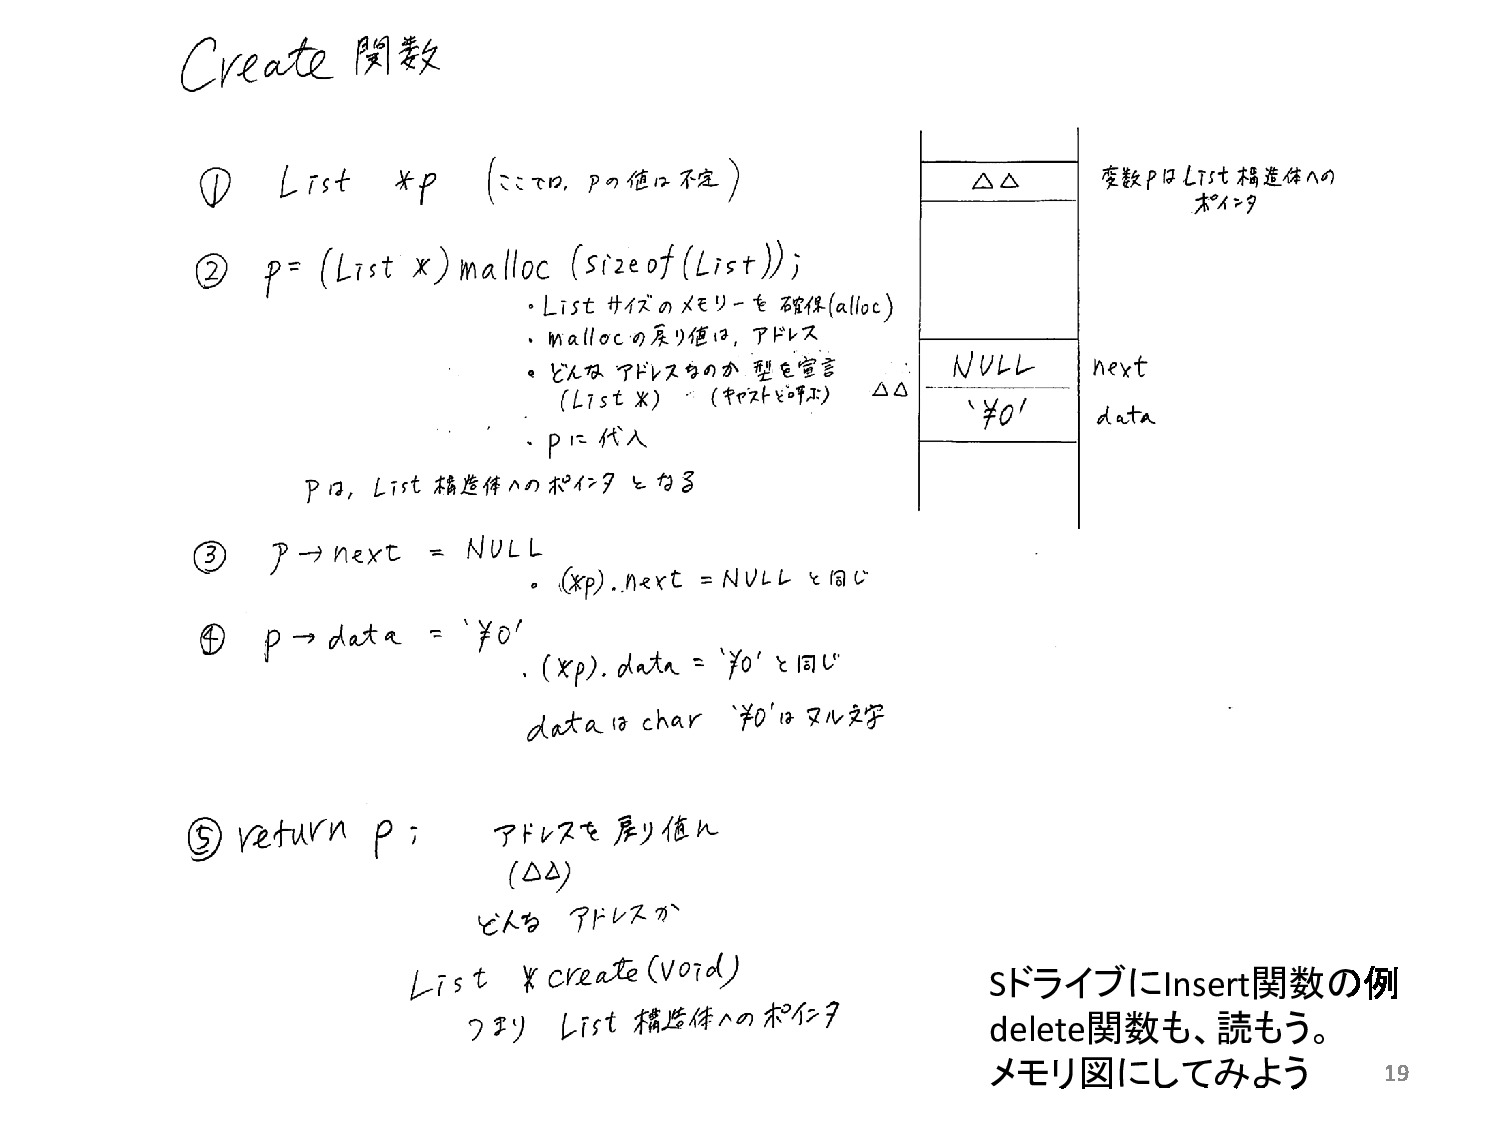 Create 関数
① List *p (ここでは, Pの値は不定)
② p= (List *) malloc (sizeof(List));
・List サイズのメモリーを 確保(alloc)
・mallocの戻り値は, アドレス
・どんな アドレスなのか 型を宣言
(List *) (キャストと呼ぶ)
・pに 代入
Pは, List 構造体へのポインタ となる
③ p→next = NULL
・(*p).next = NULL と同じ
④ p→data = '¥0'
・(*p).data = '¥0' と同じ
dataは char '¥0'は ヌル文字
⑤ return p; アドレスを 戻り値に
(△△)
どんな アドレスか
List *create(void)
つまり List 構造体へのポインタ
△△
変数PはList構造体への
ポインタ
NULL next
△△
'¥0' data
SドライブにInsert関数の例
delete関数も、読もう。
メモリ図にしてみよう
19